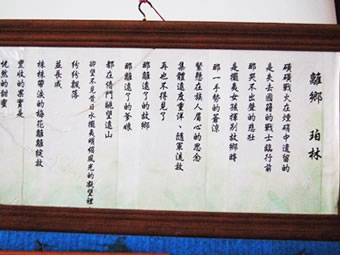 離鄉 珀林
戰火在煙硝中遺留的
是失去國籍的戰士臨行前
那哭不出聲的悲壯
是擺夷女孩揮別故鄉時
那一手勢的蒼涼
緊懸在族人眉心的思念
集體遠度重洋，隨軍流放
再也不得見了
那離遠了的故鄉
那離遠了的爹娘
都在倚門眺望遠山
卻望不見昔日水擺夷明媚風光的凝望裡
紛紛飄落
益長成
株株帶淚的梅花離離綻放
豐收的果實是
恍然的甜蜜